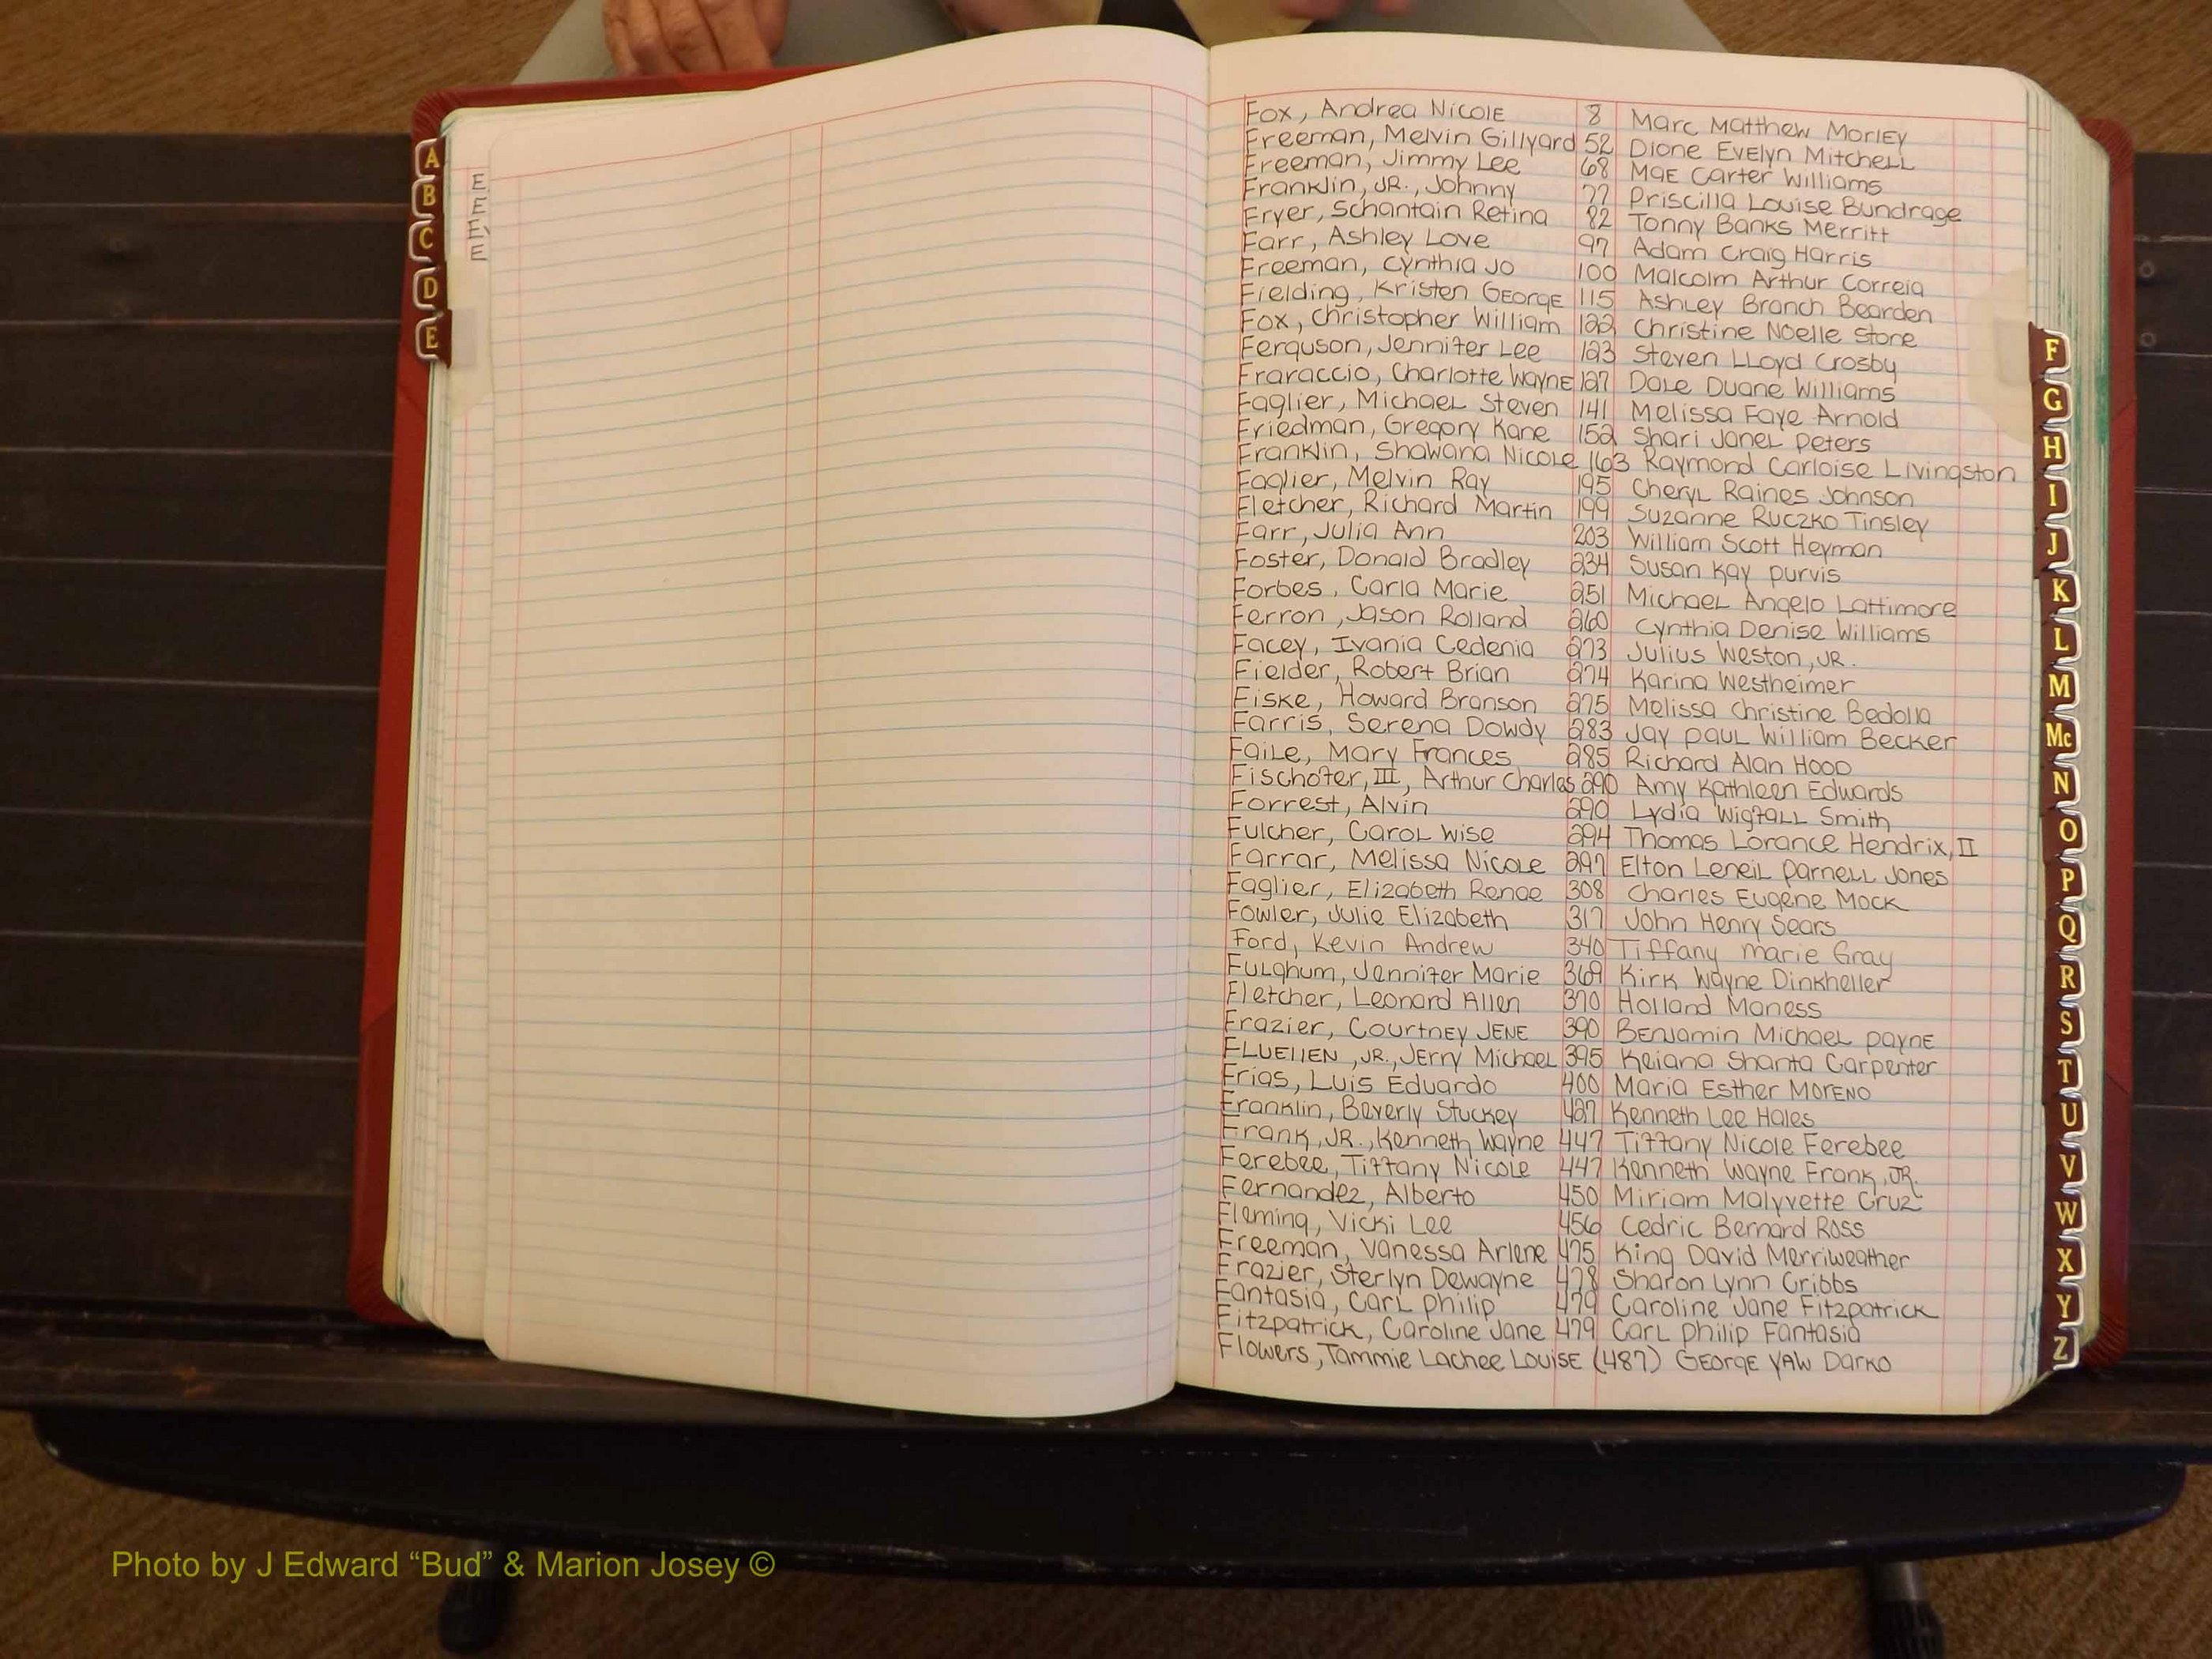 A
B
C
D
E
E
E
E
E
Fox, Andrea Nicole 8 Marc Matthew Morley
Freeman, Melvin Gillyard 52 Dione Evelyn Mitchell
Freeman, Jimmy Lee 68 Mae Carter Williams
Franklin, JR., Johnny 77 Priscilla Louise Bundrage
Fryer, Schantain Retina 82 Tonny Banks Merritt
Farr, Ashley Love 97 Adam Craig Harris
Freeman, Cynthia Jo 100 Malcolm Arthur Correia
Fielding, Kristen George 115 Ashley Branch Bearden
Fox, Christopher William 122 Christine Noelle Store
Ferguson, Jennifer Lee 123 Steven Lloyd Crosby
Fraraccio, Charlotte Wayne 127 Dale Duane Williams
Faglier, Michael Steven 141 Melissa Faye Arnold
Friedman, Gregory Kane 152 Shari Janel Peters
Franklin, Shawana Nicole 163 Raymond Carloise Livingston
Faglier, Melvin Ray 195 Cheryl Raines Johnson
Fletcher, Richard Martin 199 Suzanne Ruczko Tinsley
Farr, Julia Ann 203 William Scott Heyman
Foster, Donald Bradley 234 Susan Kay Purvis
Forbes, Carla Marie 251 Michael Angelo Lattimore
Ferron, Jason Rolland 260 Cynthia Denise Williams
Facey, Ivania Cedenia 273 Julius Weston, JR.
Fielder, Robert Brian 274 Karina Westheimer
Fiske, Howard Branson 275 Melissa Christine Bedolla
Farris, Serena Dowdy 283 Jay Paul William Becker
Faile, Mary Frances 285 Richard Alan Hood
Fischofer, III, Arthur Charles 290 Amy Kathleen Edwards
Forrest, Alvin 290 Lydia Wigfall Smith
Fulcher, Carol Wise 294 Thomas Lorance Hendrix, II
Farrar, Melissa Nicole 297 Elton Leneil Parnell Jones
Faglier, Elizabeth Renae 308 Charles Eugene Mock
Fowler, Julie Elizabeth 317 John Henry Sears
Ford, Kevin Andrew 340 Tiffany Marie Gray
Fulghum, Jennifer Marie 369 Kirk Wayne Dinkheller
Fletcher, Leonard Allen 370 Holland Maness
Frazier, Courtney Jene 390 Benjamin Michael Payne
Fluellen, JR., Jerry Michael 395 Keiana Shanta Carpenter
Frias, Luis Eduardo 400 Maria Esther Moreno
Franklin, Beverly Stuckey 427 Kenneth Lee Hales
Frank, JR., Kenneth Wayne 447 Tiffany Nicole Ferebee
Ferebee, Tiffany Nicole 447 Kenneth Wayne Frank, JR.
Fernandez, Alberto 450 Miriam Malyvette Cruz
Fleming, Vicki Lee 456 Cedric Bernard Ross
Freeman, Vanessa Arlene 475 King David Merriweather
Frazier, Sterlyn Dewayne 478 Sharon Lynn Cribbs
Fantasia, Carl Philip 479 Caroline Jane Fitzpatrick
Fitzpatrick, Caroline Jane 479 Carl Philip Fantasia
Flowers, Tammie Lachee Louise (487) George Yaw Darko
F
G
H
I
J
K
L
M
Mc
N
O
P
Q
R
S
T
U
V
W
X
Y
Z
Photo by J Edward “Bud” & Marion Josey ©